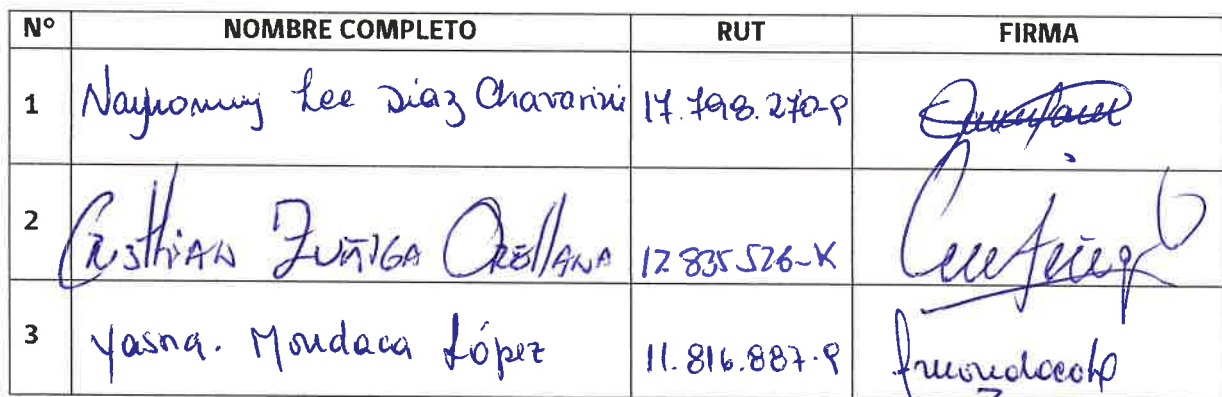 N° NOMBRE COMPLETO RUT FIRMA
1 Nayhomy Lee Diaz Chavarini 17.798.270-9
2 Cristhian Zuñiga Orellana 12835526-K
3 Yasna. Mondaca López 11.816.887-9